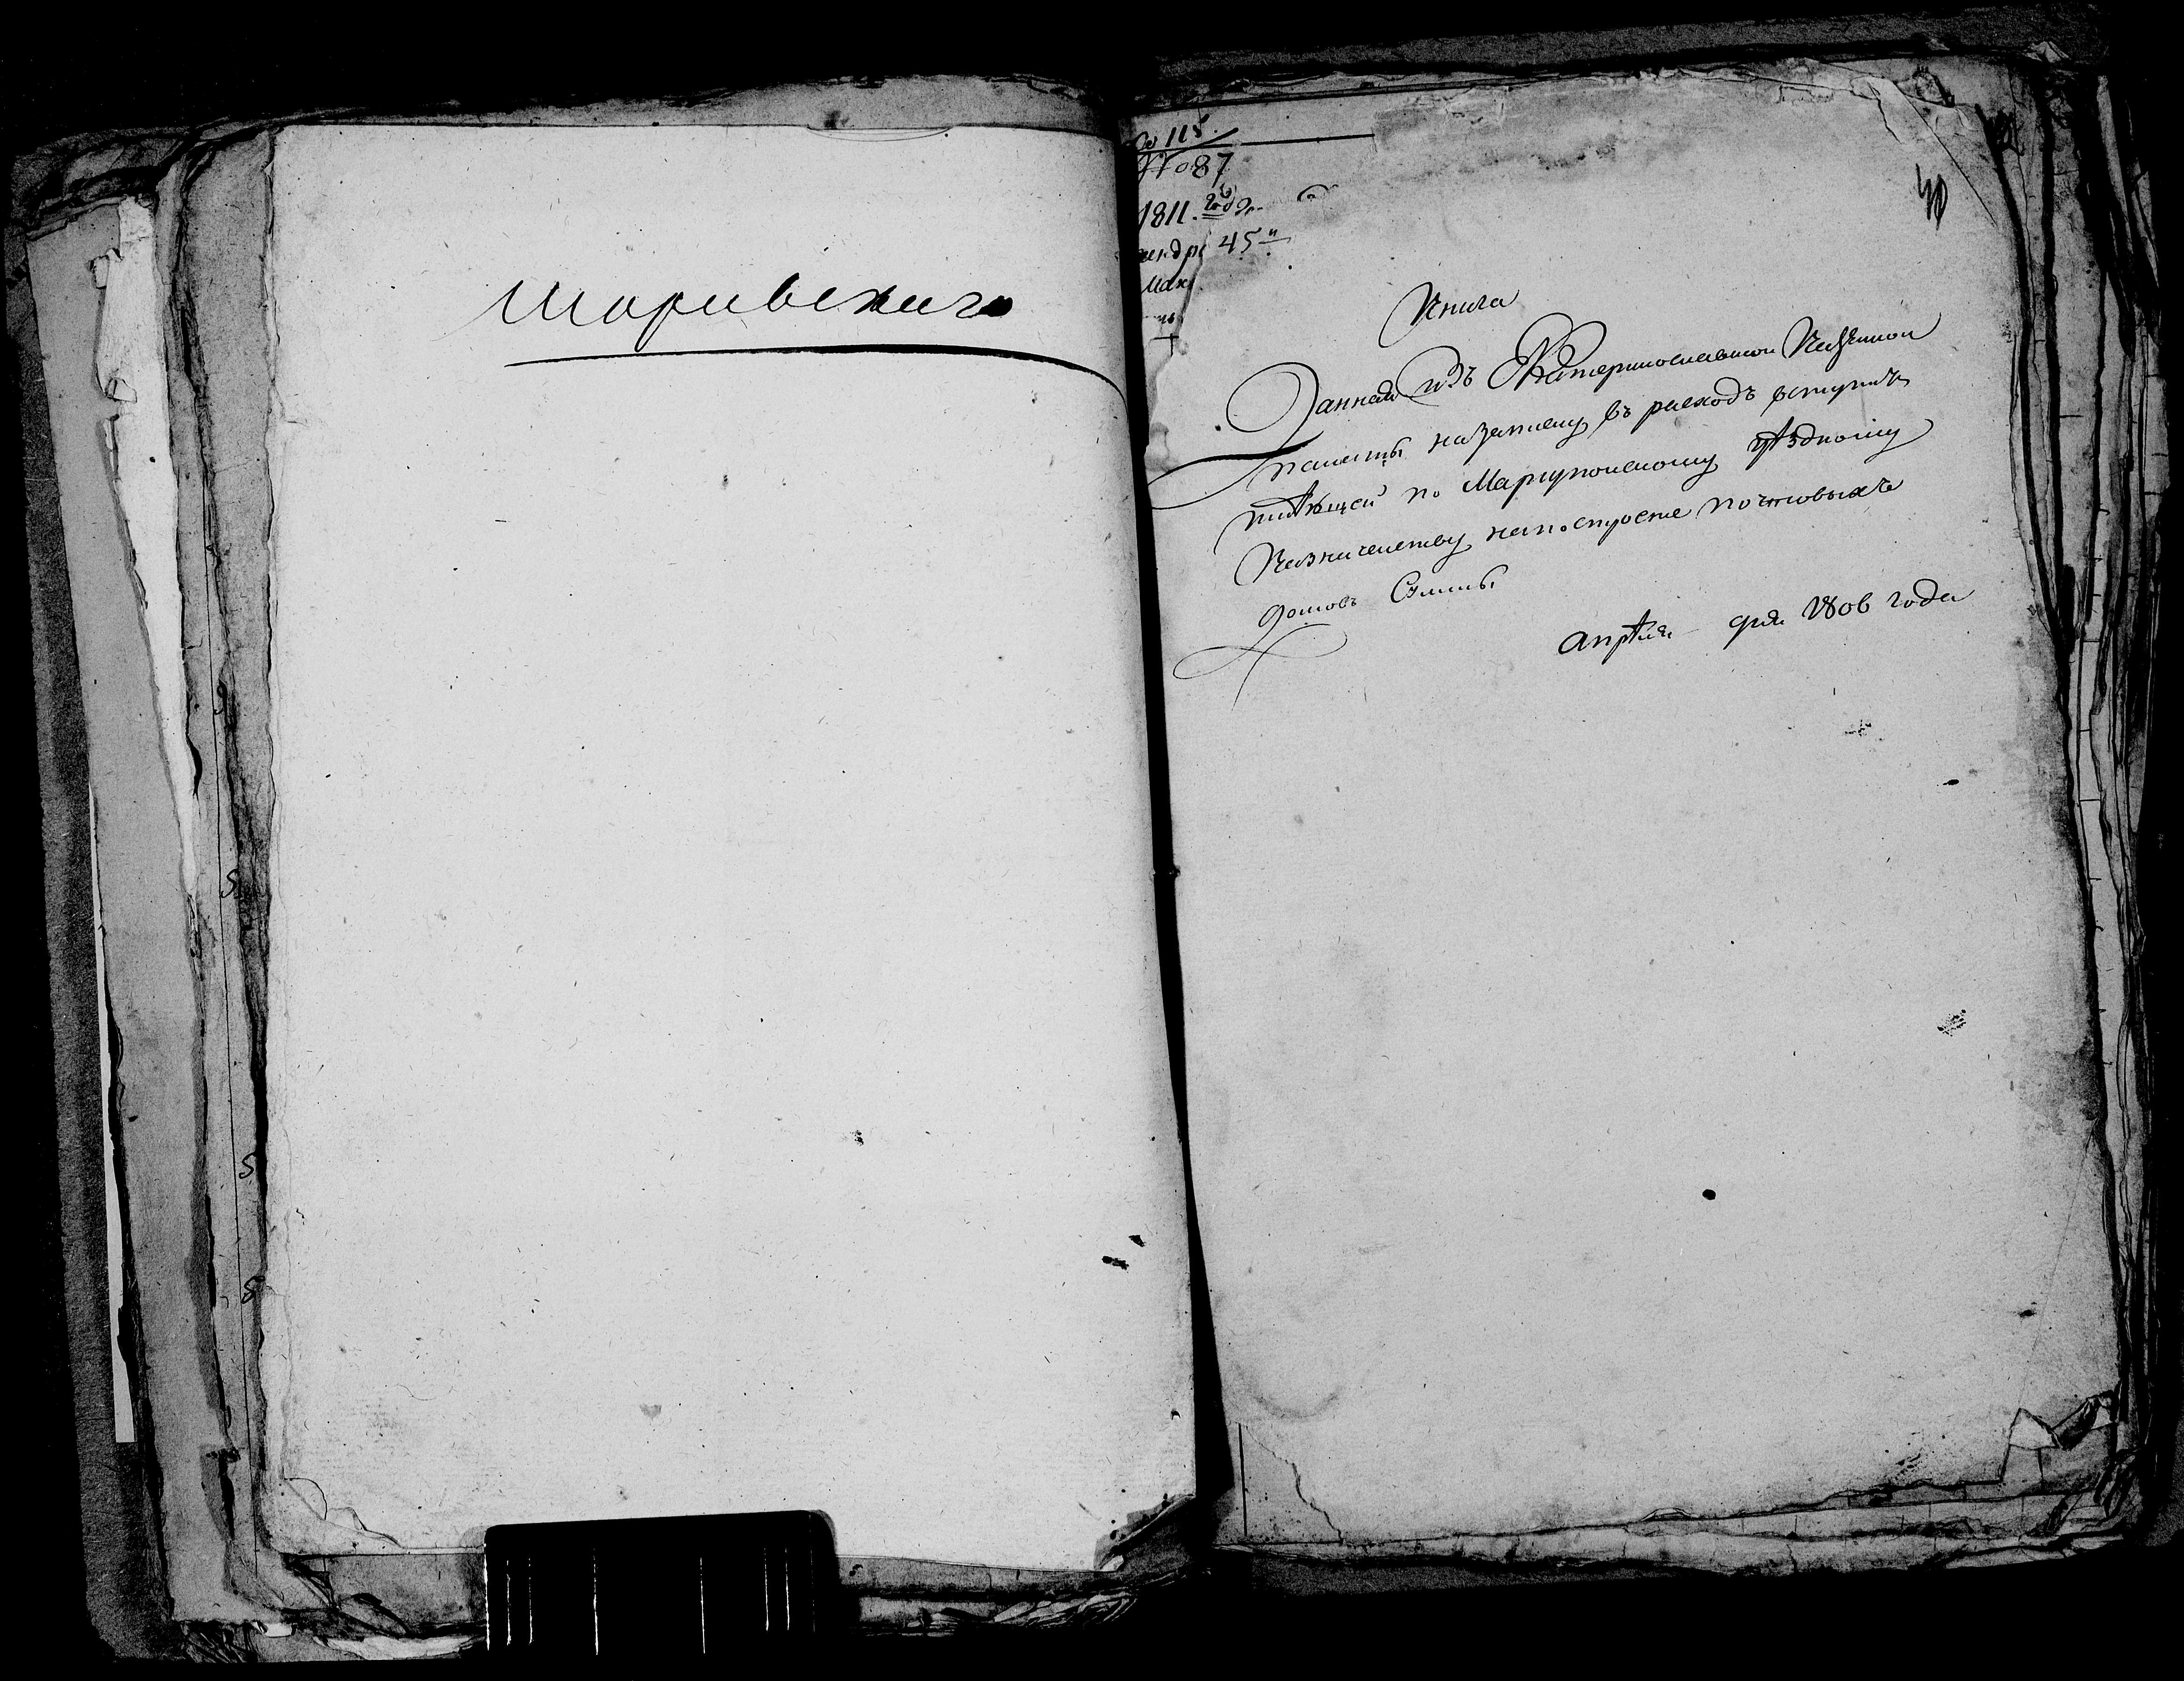 Шоривскаго
115.
87
1811. году
45
Книга
Данная изъ Екатеринославской Казенной
палаты на записку въ расходъ вступив
шей по Мариупольскому уѣздному
Казначейству на построение почтовыхъ
домовъ Суммы
апрѣля дня 1806 года